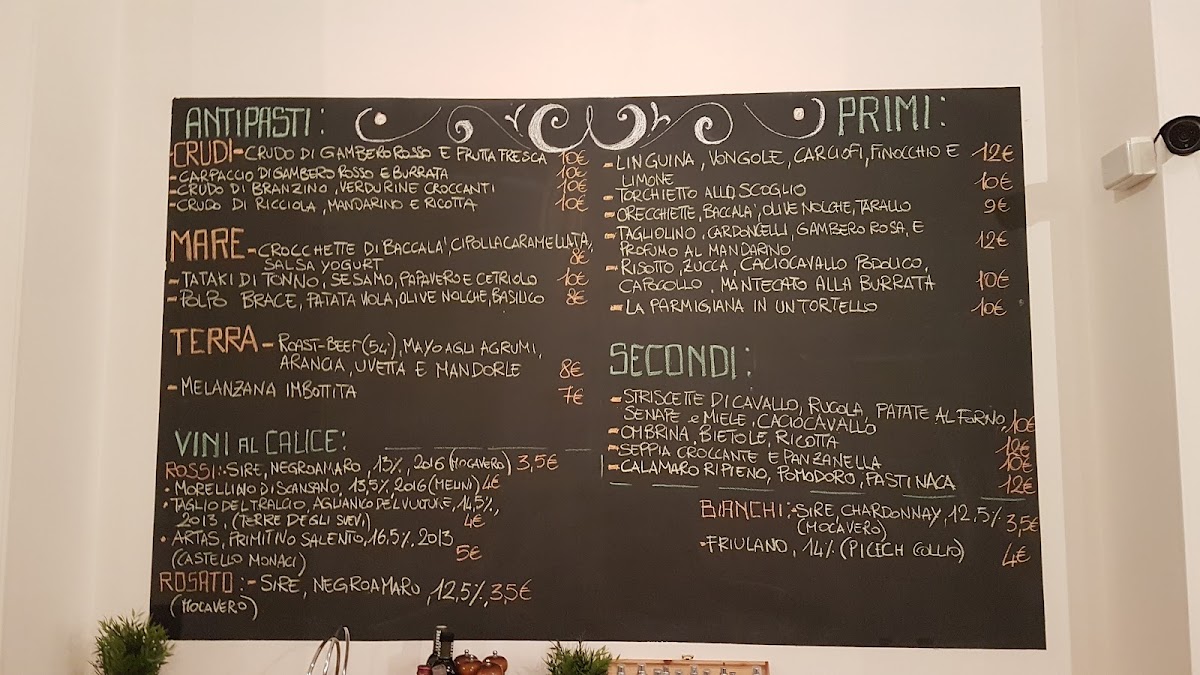 ANTIPASTI:
CRUDI- CRUDO DI GAMBERO ROSSO E FRUTTA FRESCA 10€
- CARPACCIO DI GAMBERO ROSSO E BURRATA 10€
- CRUDO DI BRANZINO, VERDURINE CROCCANTI 10€
- CRUDO DI RICCIOLA, MANDARINO E RICOTTA 10€
MARE- CROCCHETTE DI BACCALA', CIPOLLA CARAMELLATA,
SALSA YOGURT 8€
- TATAKI DI TONNO, SESAMO, PAPAVERO E CETRIOLO 10€
- POLPO BRACE, PATATA VIOLA, OLIVE NOLCHE, BASILICO 8€
TERRA- ROAST-BEEF (54°), MAYO AGLI AGRUMI,
ARANCIA, UVETTA E MANDORLE 8€
- MELANZANA IMBOTTITA 7€
VINI AL CALICE:
ROSSI:- SIRE, NEGROAMARO, 13%, 2016 (MOCAVERO) 3,5€
• MORELLINO DI SCANSANO, 13,5%, 2016 (MELINI) 4€
• TAGLIO DEL TRALCIO, AGLIANICO DEL VULTURE, 14,5%,
2013, (TERRE DEGLI SVEVI) 4€
• ARTAS, PRIMITIVO SALENTO, 16,5%, 2013
(CASTELLO MONACI) 5€
ROSATO:- SIRE, NEGROAMARO, 12,5%, 3,5€
(MOCAVERO)
PRIMI:
- LINGUINA, VONGOLE, CARCIOFI, FINOCCHIO E 12€
LIMONE
- TORCHIETTO ALLO SCOGLIO 10€
- ORECCHIETTE, BACCALA', OLIVE NOLCHE, TARALLO 9€
- TAGLIOLINO, CARDONCELLI, GAMBERO ROSA, E
PROFUMO AL MANDARINO 12€
- RISOTTO, ZUCCA, CACIOCAVALLO PODOLICO,
CAPOCOLLO, MANTECATO ALLA BURRATA 10€
- LA PARMIGIANA IN UN TORTELLO 10€
SECONDI:
- STRISCETTE DI CAVALLO, RUCOLA, PATATE AL FORNO,
SENAPE e MIELE, CACIOCAVALLO 10€
- OMBRINA, BIETOLE, RICOTTA 12€
- SEPPIA CROCCANTE E PANZANELLA 10€
- CALAMARO RIPIENO, POMODORO, PASTINACA 12€
BIANCHI:- SIRE, CHARDONNAY, 12,5% 3,5€
(MOCAVERO)
- FRIULANO, 14% (PICECH COLLIO) 4€